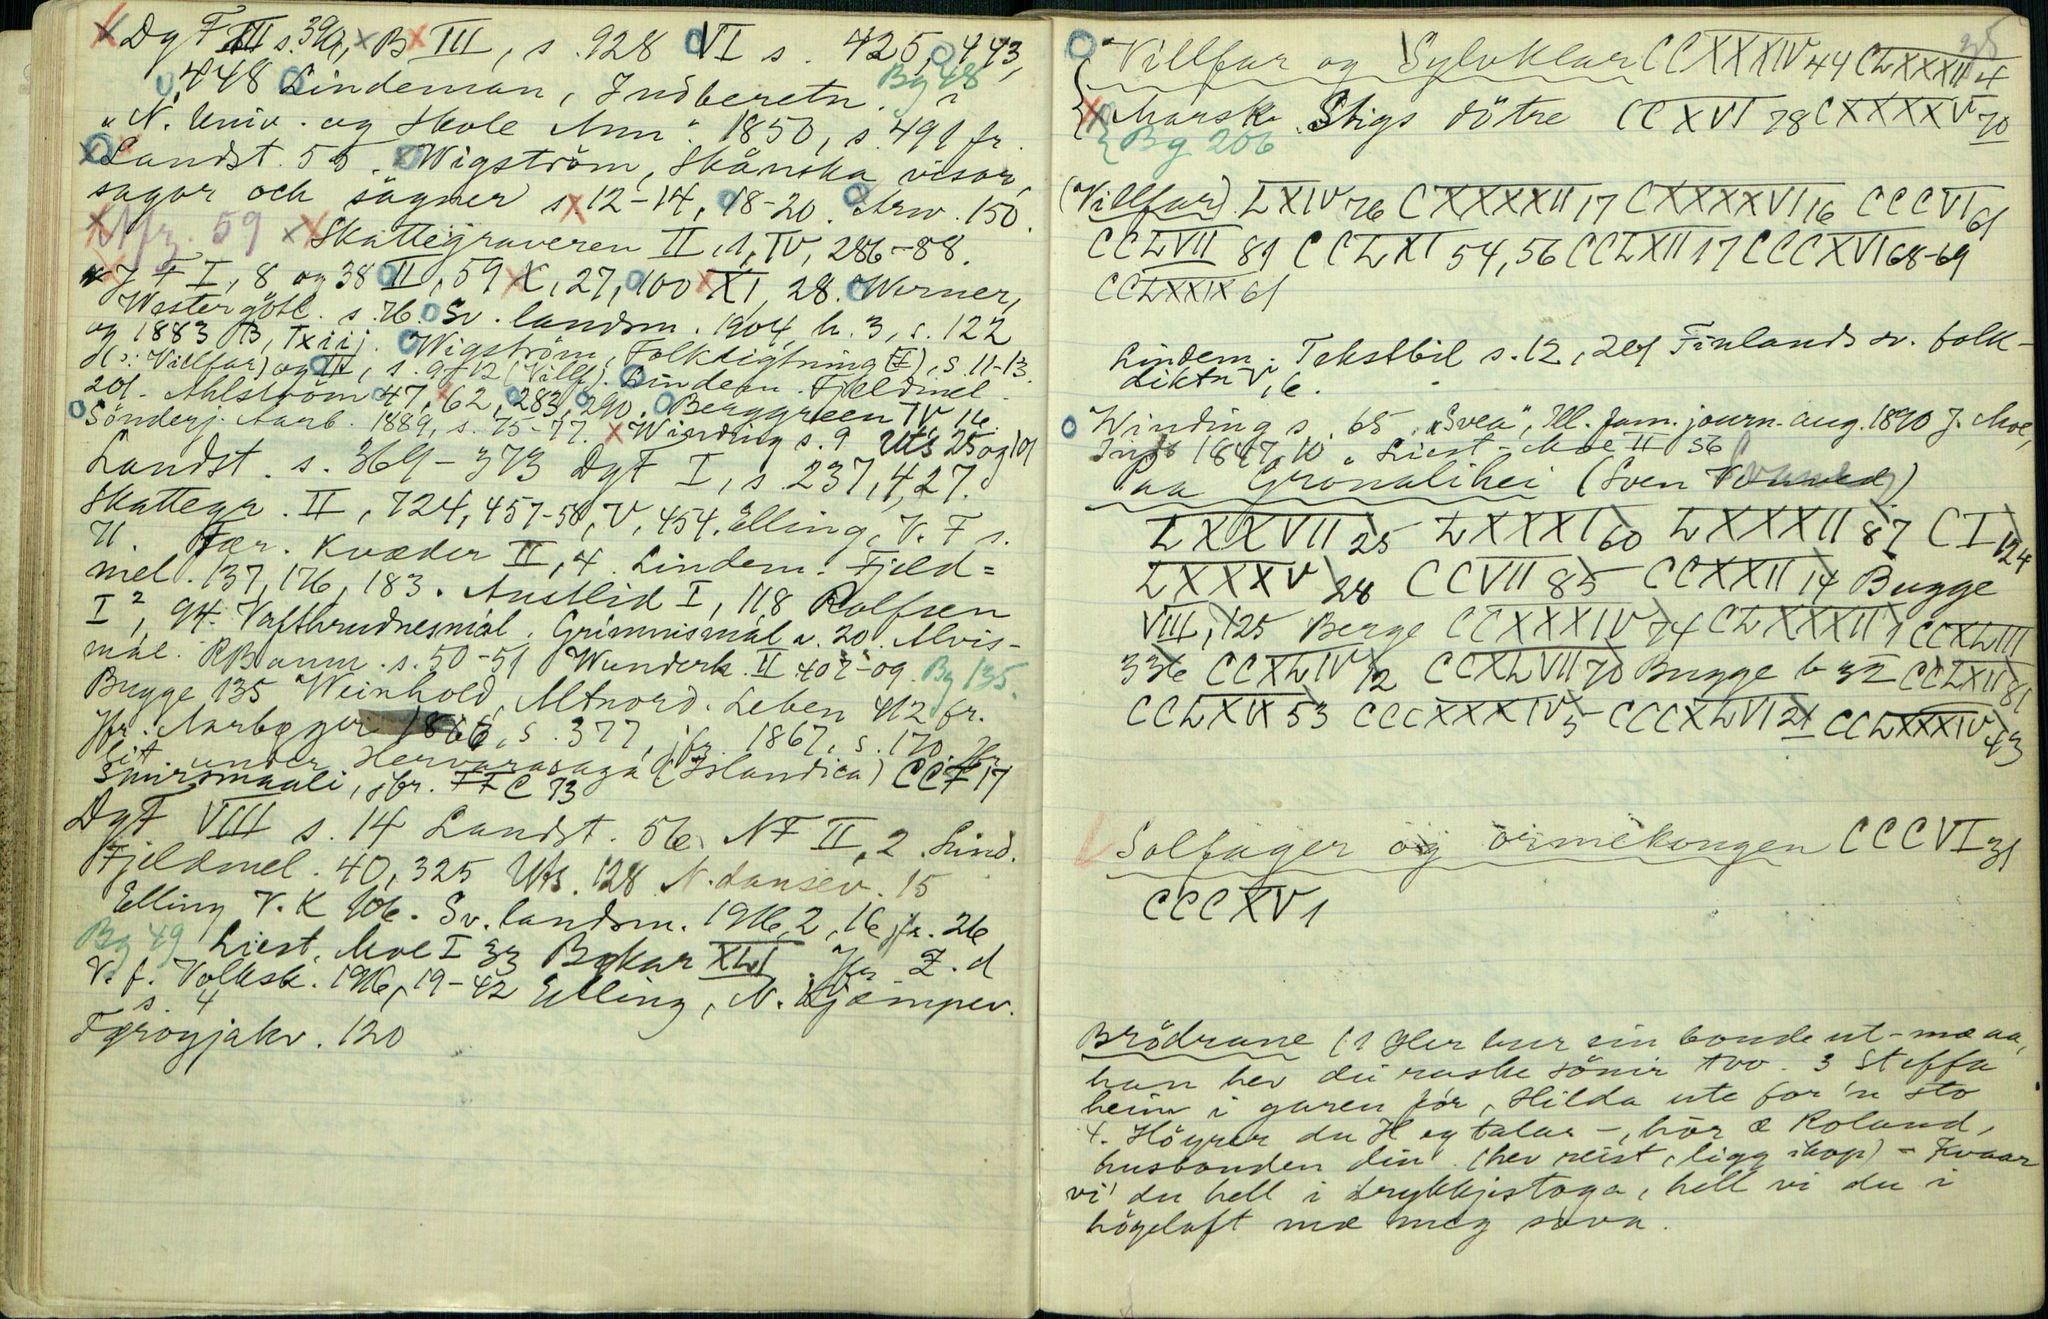 DgF III s. 391, B III, s. 928 VI s. 425, 443,
448 Lindeman, Indberetn. Bg 48 i
"N. Univ. og Skole Ann". 1850, s. 491 fr.
Landst. 55. Wigström, Skånska visor,
sagor och sägner s. 12-14, 18-20. Arw. 150.
Jfr. 59 Skattegraveren II, 1, IV, 286-88.
J F I, 8 og 38 II, 59 X, 27, 100 XI, 28. Werner,
Westergötl. s. 76. Sv. landsm. 1904, h. 3, s. 122
og 1883 B, Txiij. Wigström, Folkdigtning (I), s. 11-13.
(Villfar) og II, s. 9, 12 (Villf). Lindem. Fjeldmel.
201. Ahlström 47, 62, 283, 290. Berggreen IV 16.
Sönderj. Aarb. 1889, s. 75-77. Winding s. 9 Uts 25 og 101
Landst. s. 369-373 DgF I, s 237, 427.
Skattegr. II, 724, 457-58, V, 454. Elling, V. F s.
11. Fær. Kvæder II, 4. Lindem. Fjeld=
mel. 137, 176, 183. Austlid I, 118 Rolfsen
I², 94. Vafthrudnesmál. Grimnismál v. 20. Alvis-
mál. RB anm. s. 50-51 Wunderh. II 407-09. Bg 135.
Bugge 135 Weinhold, Altnord. Leben 412 fr.
Jfr. Aarbøger 1866, s. 377, jfr. 1867, s. 170. Jfr.
lit under Hervararsaga (Islandica) CCF 17
Spursmaali, jfr. FFC 73
DgF VIII s. 14 Landst. 56. NF II, 2. Lind.
Fjeldmel. 40, 325 Uts. 128 N. dansev. 15
Elling V. K 106. Sv. landsm. 1916, 2, 16 jfr. 26
Bg 49 Liest. Moe I 33 Bøkar XLI. Jfr Z. d
V. f. Volksk. 1916, 19-42 Elling, N. Kjæmpev.
s. 4
Føroyjakv. 120
35
Villfar og Sylvklar CCXXXIV 44 CLXXXII 4
Marsk Stigs dötre CCXVI 78 CXXXXV 70
Bg 206
(Villfar) LXIV 76 CXXXXII 17 CXXXXVI 16 CCCVI 61
CCLVII 81 CCLXI 54, 56 CCLXII 17 CCCXVI 68-69
CCLXXIX 61
Lindem. Tekstbil s. 12, 201 Finlands sv. folk-
diktn V, 6.
Winding s. 65. "Svea", Ill. fam. journ. aug. 1890 J. Moe,
Indb 1847, 10. Liest-Moe II 56
Paa Grönalihei (Sven Vonved)
LXXVII 25 LXXXI 60 LXXXII 87 CI 124
LXXXV 28 CCVII 85 CCXXII 14 Bugge
VIII, 125 Berge CCXXXIV 74 CLXXXII 1 CCXLIII
336 CCXLIV 12 CCXLVII 70 Bugge b 32 CCLXII 81
CCLXIX 53 CCCXXXIV 5 CCCXLVI 21 CCLXXXIV 43
Solfager og ormekongen CCCVI 31
CCCXV 1
Brödrane (1 Her bur ein bonde ut-mæ aa,
han hev di raske sönir tvo. 3 Steffa
heim i garen för, Hilda ute for 'n sto
4. Höyrer du H eg talar -, hör æ Roland,
husbonden din (hev reist, ligg ihop) - Kvaar
vi' du hell i drykkjistoga, hell vi du i
högeloft mæ meg sova.